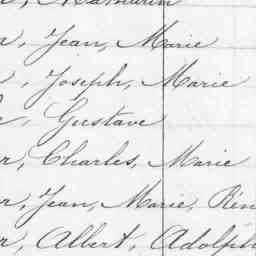 , Mathurin
, Jean, Marie
, Joseph, Marie
, Gustave
r, Charles, Marie
r, Jean, Marie, Ren
r, Albert, Adolph